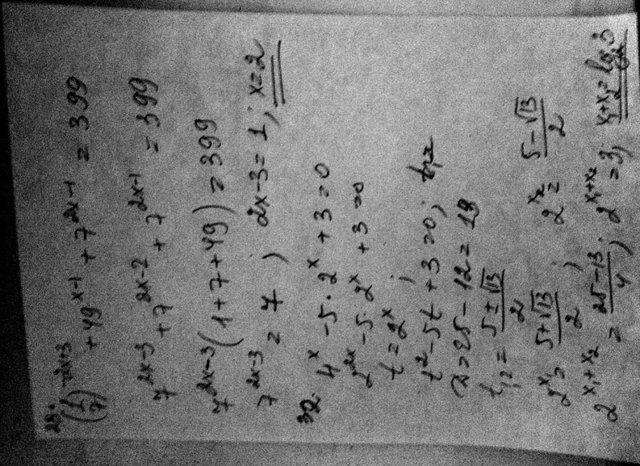 29.
(1/7)^(-2x+3) + 49^(x-1) + 7^(2x-1) = 399
7^(2x-3) + 7^(2x-2) + 7^(2x-1) = 399
7^(2x-3)(1+7+49) = 399
7^(2x-3) = 7; 2x-3=1; x=2
30. 4^x - 5·2^x + 3 = 0
2^(2x) - 5·2^x + 3 = 0
t = 2^x;
t² - 5t + 3 = 0;
D = 25 - 12 = 13
t₁,₂ = (5±√13)/2
2^(x₁) = (5+√13)/2; 2^(x₂) = (5-√13)/2
2^(x₁+x₂) = (25-13)/4; 2^(x₁+x₂) = 3, x₁+x₂ = log₂3